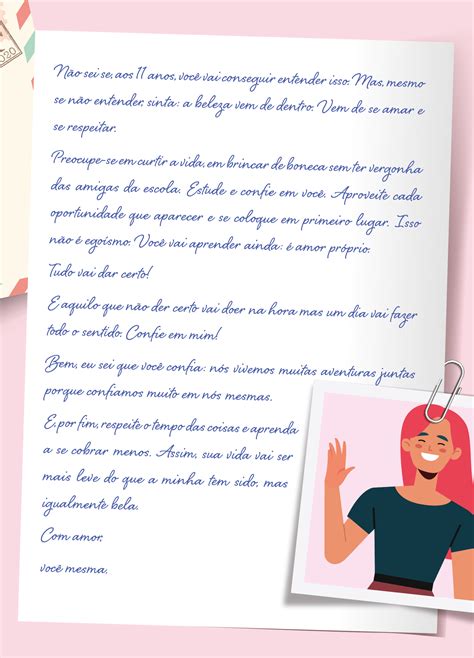 2020
Não sei se, aos 11 anos, você vai conseguir entender isso. Mas, mesmo
se não entender, sinta: a beleza vem de dentro. Vem de se amar e
se respeitar.
Preocupe-se em curtir a vida, em brincar de boneca sem ter vergonha
das amigas da escola. Estude e confie em você. Aproveite cada
oportunidade que aparecer e se coloque em primeiro lugar. Isso
não é egoísmo. Você vai aprender ainda: é amor próprio.
Tudo vai dar certo!
E aquilo que não der certo vai doer na hora mas um dia vai fazer
todo o sentido. Confie em mim!
Bem, eu sei que você confia: nós vivemos muitas aventuras juntas
porque confiamos muito em nós mesmas.
E, por fim, respeite o tempo das coisas e aprenda
a se cobrar menos. Assim, sua vida vai ser
mais leve do que a minha tem sido, mas
igualmente bela.
Com amor,
você mesma.